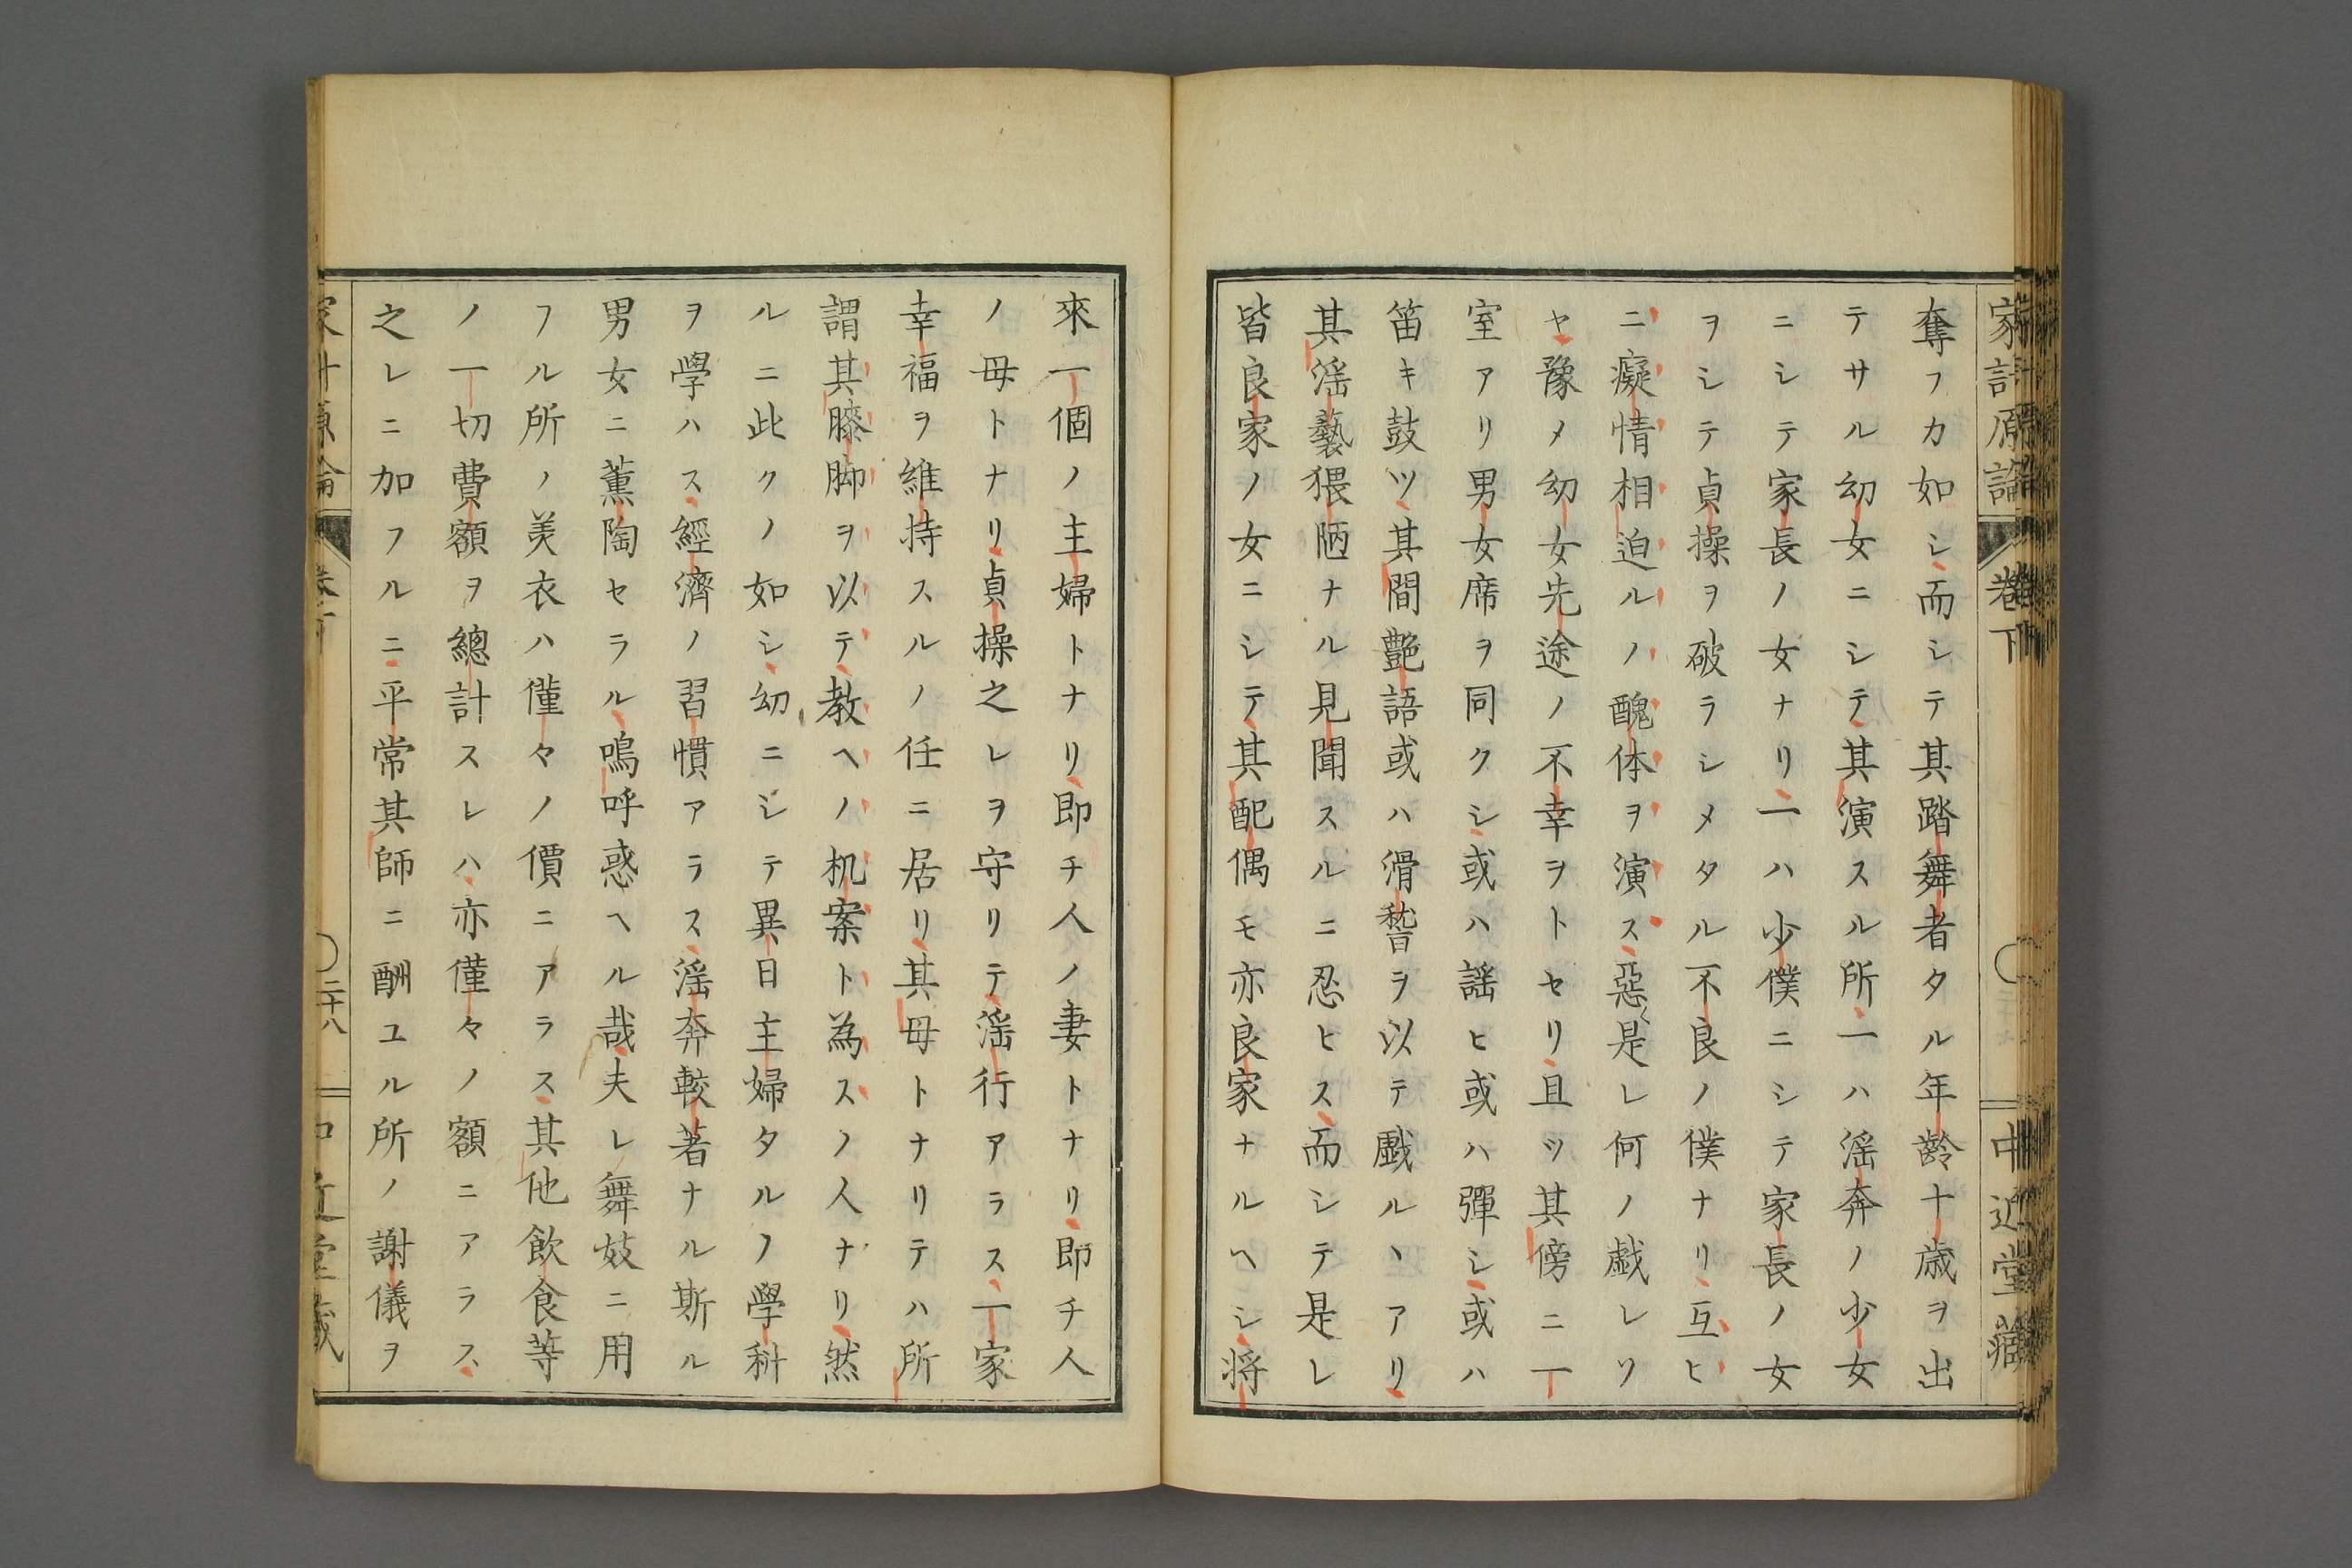 家計原論 卷下 中近堂藏
奪フカ如シ而シテ其踏舞者タル年齡十歳ヲ出
テサル幼女ニシテ其演スル所一ハ滛奔ノ少女
ニシテ家長ノ女ナリ一ハ少僕ニシテ家長ノ女
ヲシテ貞操ヲ破ラシメタル不良ノ僕ナリ互ヒ
ニ癡情相迫ルノ醜体ヲ演ス惡是レ何ノ戯レソ
ヤ豫メ幼女先途ノ不幸ヲトセリ且ツ其傍ニ一
室アリ男女席ヲ同クシ或ハ謡ヒ或ハ彈シ或ハ
笛キ鼓ツ其間艶語或ハ滑稽ヲ以テ戯ルヽアリ
其滛藝猥陋ナル見聞スルニ忍ヒス而シテ是レ
皆良家ノ女ニシテ其配偶モ亦良家ナルヘシ将
來一個ノ主婦トナリ即チ人ノ妻トナリ即チ人
ノ母トナリ貞操之レヲ守リテ滛行アラス一家
幸福ヲ維持スルノ任ニ居リ其母トナリテハ所
謂其膝脚ヲ以テ教ヘノ机案ト為スノ人ナリ然
ルニ此クノ如シ幼ニシテ異日主婦タルノ學科
ヲ學ハス經濟ノ習慣アラス滛奔較著ナル斯ル
男女ニ薫陶セラル嗚呼惑ヘル哉夫レ舞妓ニ用
フル所ノ美衣ハ僅々ノ價ニアラス其他飲食等
ノ一切費額ヲ總計スレハ亦僅々ノ額ニアラス
之レニ加フルニ平常其師ニ酬ユル所ノ謝儀ヲ
家計原論 卷下 二十八 中近堂藏